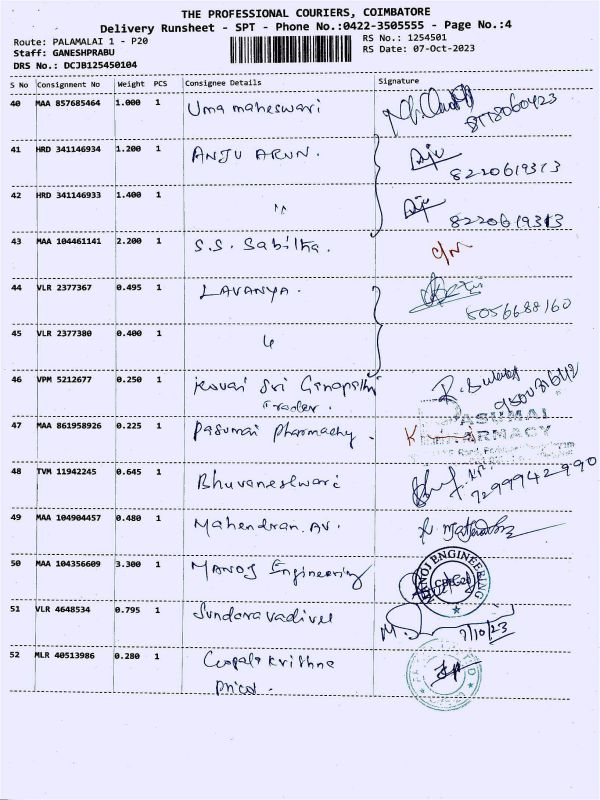 THE PROFESSIONAL COURIERS, COIMBATORE
Delivery Runsheet - SPT - Phone No.:0422-3505555 - Page No.:4
Route: PALAMALAI 1 - P20
RS No.: 1254501
Staff: GANESHPRABU
RS Date: 07-Oct-2023
DRS No.: DCJB125450104
S No Consignment No Weight PCS Consignee Details Signature
40 MAA 857685464 1.000 1 Uma maheswari
41 HRD 341146934 1.200 1 ANJU ARUN. Anju
8220619313
42 HRD 341146933 1.400 1 " Anju
8220619313
43 MAA 104461141 2.200 1 S.S. Sabitha.
44 VLR 2377367 0.495 1 LAVANYA.
8056688160
45 VLR 2377380 0.400 1
46 VPM 5212677 0.250 1 Kovai Sri Ganapathi
Trader.
47 MAA 861958926 0.225 1 Pasumai Pharmachy. PASUMAI
PHARMACY
48 TVM 11942245 0.645 1 Bhuvaneshwari
7299942990
49 MAA 104904457 0.480 1 Mahendran. AV.
50 MAA 104356609 3.300 1 MANOJ Engineering MANOJ ENGINEERING
51 VLR 4648534 0.795 1 Sundaravadivel
M.S 7/10/23
52 MLR 40513986 0.280 1 Gopala Krishna
Pricol.